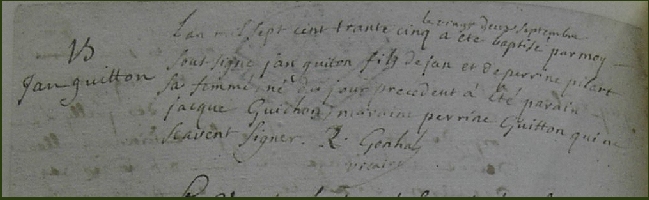 B
Jan guitton
Lan mil sept cint trante cinq a été baptisé par moy
le vingt deux septembre
sout signé jan guiton fils de jan et de perrine pilart
sa femme, né du jour precedent a été parain
jacque Guichon maraine perrine Guitton qui ne
scavent signer. R. Gonhal
vicaire